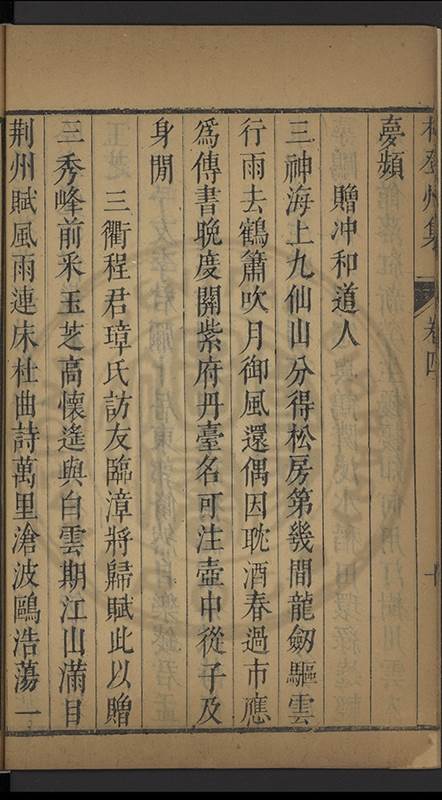 夢頻
贈冲和道人
三神海上九仙山分得松房第幾間龍劒驅雲
行雨去鶴簫吹月御風還偶因耽酒春過市應
爲傳書晚度關紫府丹臺名可注壺中從子及
身閒
三衢程君璋氏訪友臨漳將歸賦此以贈
三秀峰前采玉芝高懷遙與白雲期江山滿目
荆州賦風雨連床杜曲詩萬里滄波鷗浩蕩一